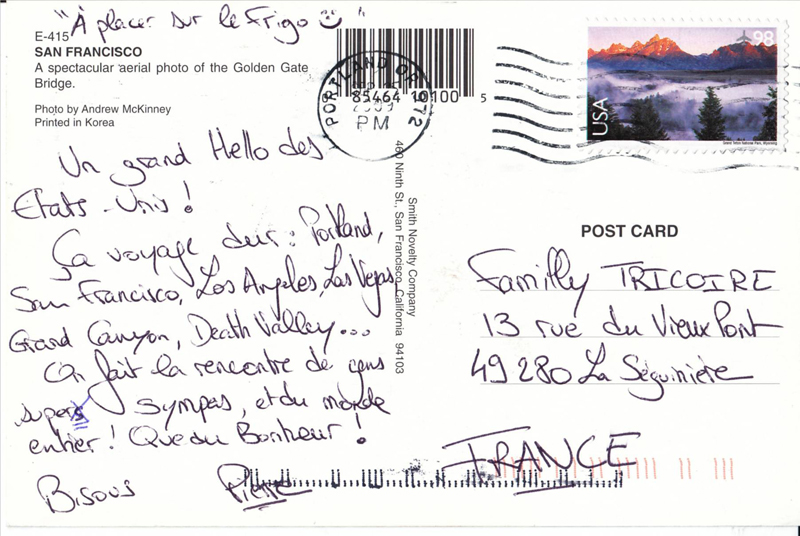 "À placer sur le Frigo
E-415
SAN FRANCISCO
A spectacular aerial photo of the Golden Gate
Bridge.
Photo by Andrew McKinney
Printed in Korea
Un grand Hello des
Etats-Unis !
Ça voyage dur : Portland,
San Francisco, Los Angeles, Las Vegas,
Grand Canyon, Death Valley...
On fait la rencontre de gens
supers sympas, et du monde
entier ! Que du Bonheur !
Bisous Pierre
PORTLAND OR 972
PM
85464 10100 5
Smith Novelty Company
460 Ninth St., San Francisco, California 94103
98
USA
Grand Teton National Park, Wyoming
POST CARD
Familly TRICOIRE
13 rue du Vieux Pont
49280 La Séguinière
FRANCE